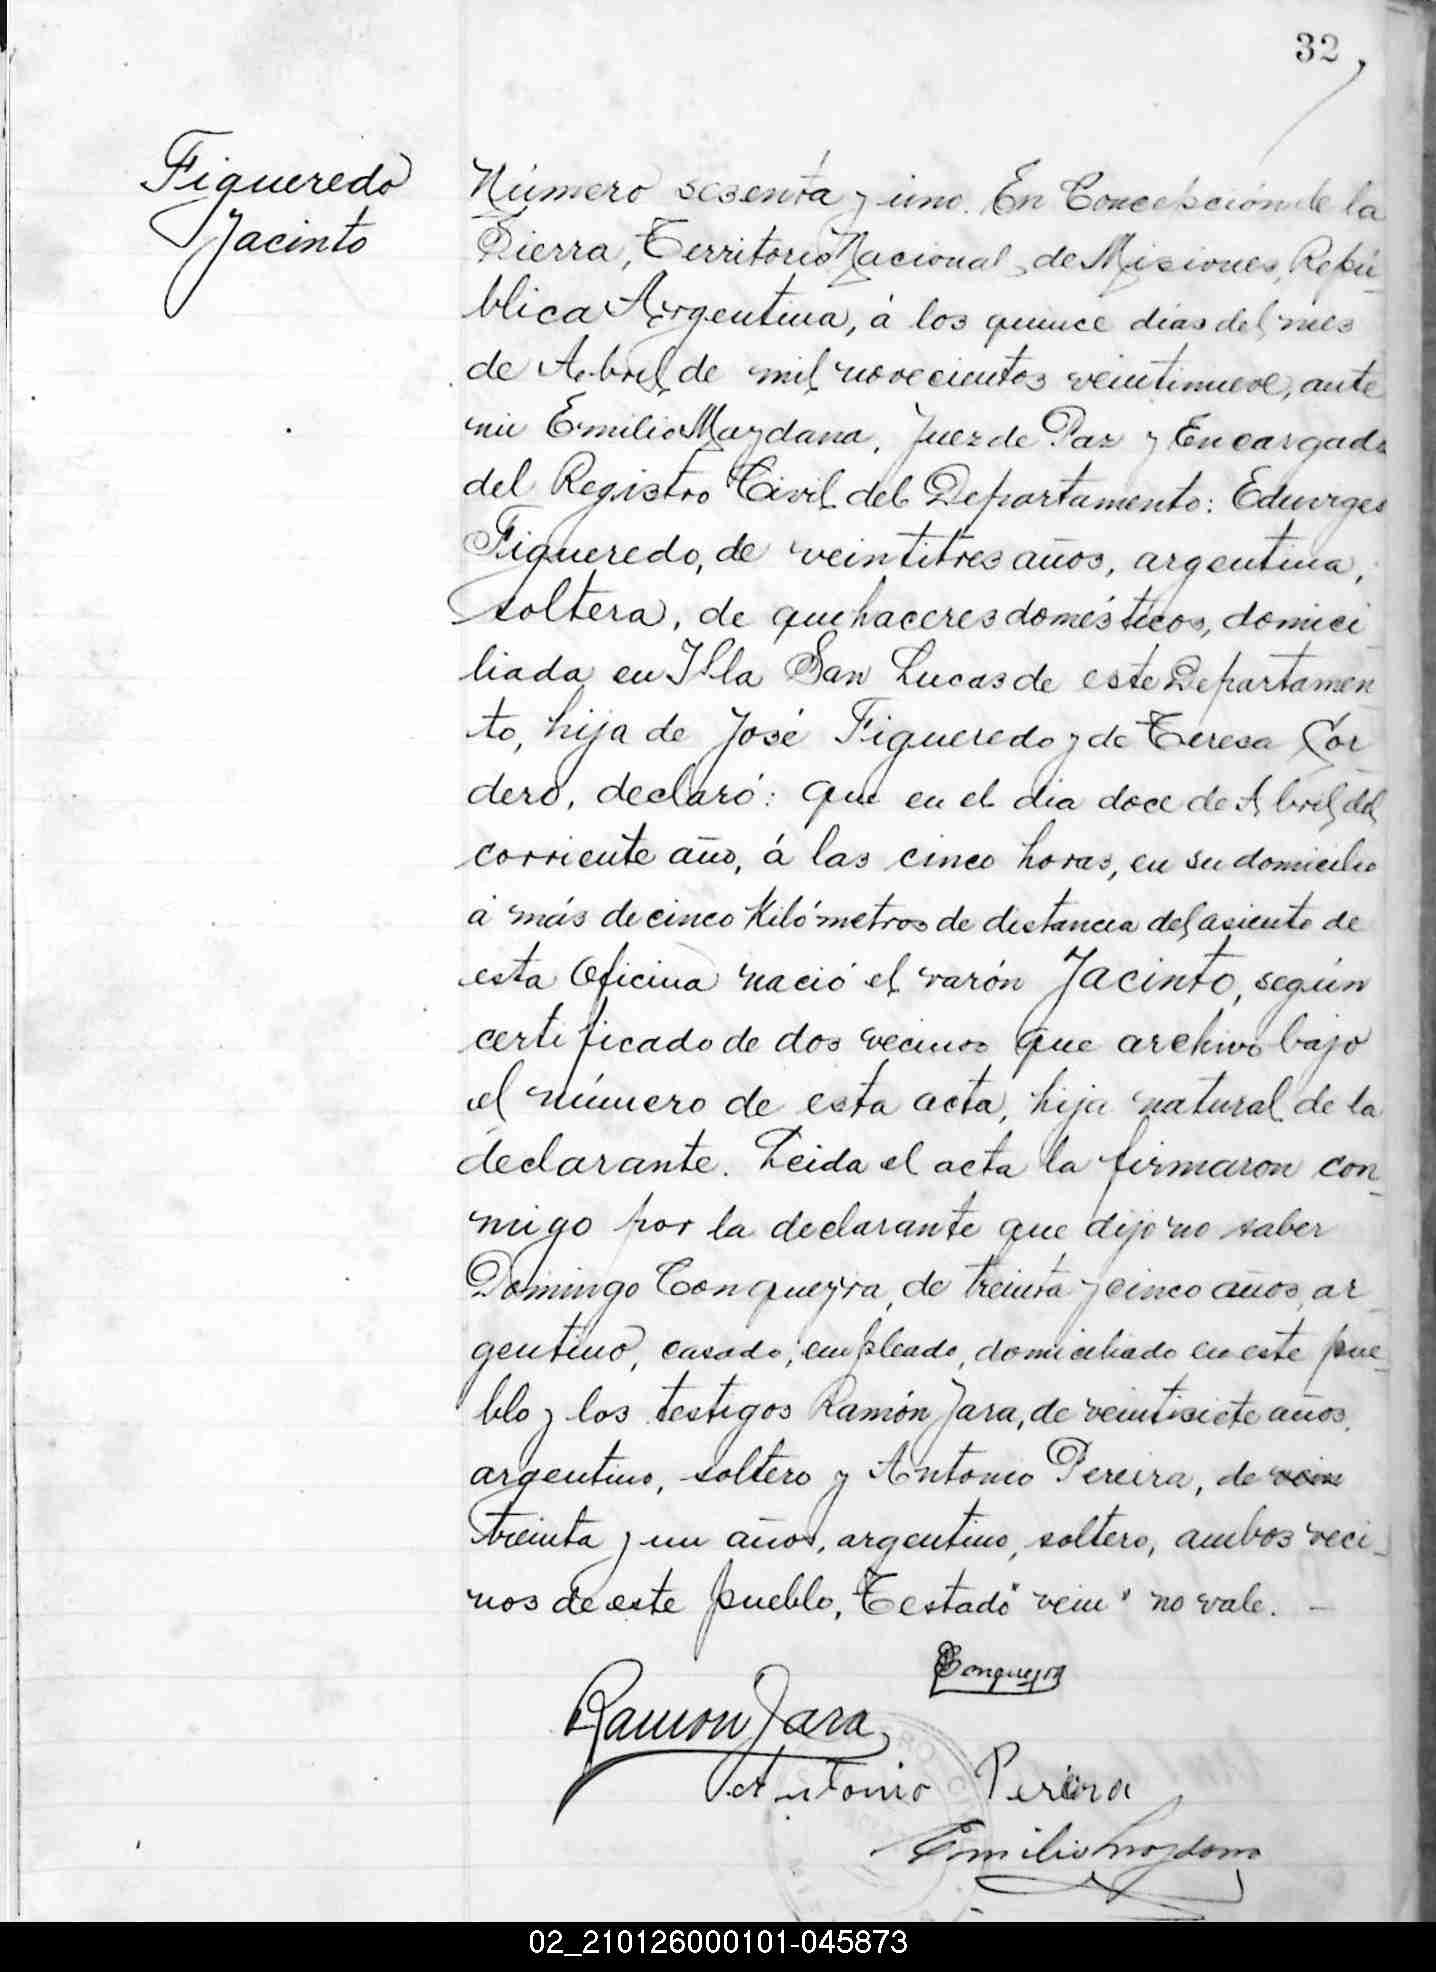 32
Figueredo
Jacinto
Número sesenta y uno. En Concepción de la
Sierra, Territorio Nacional de Misiones, Repú-
blica Argentina, á los quince dias del mes
de Abril de mil novecientos veintinueve, ante
mi Emilio Maydana, Juez de Paz y Encargado
del Registro Civil del Departamento: Eduvirges
Figueredo, de veintitres años, argentina,
soltera, de quehaceres domésticos, domici
liada en Isla San Lucas de este Departamen
to, hija de José Figueredo y de Teresa Cor
dero, declaró: Que en el dia doce de Abril del
corriente año, á las cinco horas, en su domicilio
á más de cinco Kilómetros de distancia del asiento de
esta Oficina nació el varón Jacinto, según
certificado de dos vecinos que archivo bajo
el número de esta acta, hijo natural de la
declarante. Leida el acta la firmaron con-
migo por la declarante que dijo no saber
Domingo Conqueyra, de treinta y cinco años, ar
gentino, casado, empleado, domiciliado en este pue-
blo y los testigos Ramón Jara, de veintisiete años,
argentino, soltero y Antonio Pereira, de vein
treinta y un años, argentino, soltero, ambos veci-
nos de este pueblo, Testado "vein" no vale. —
Conqueyra
Ramon Jara
Antonio Pereira
Emilio Maydana
02_210126000101-045873